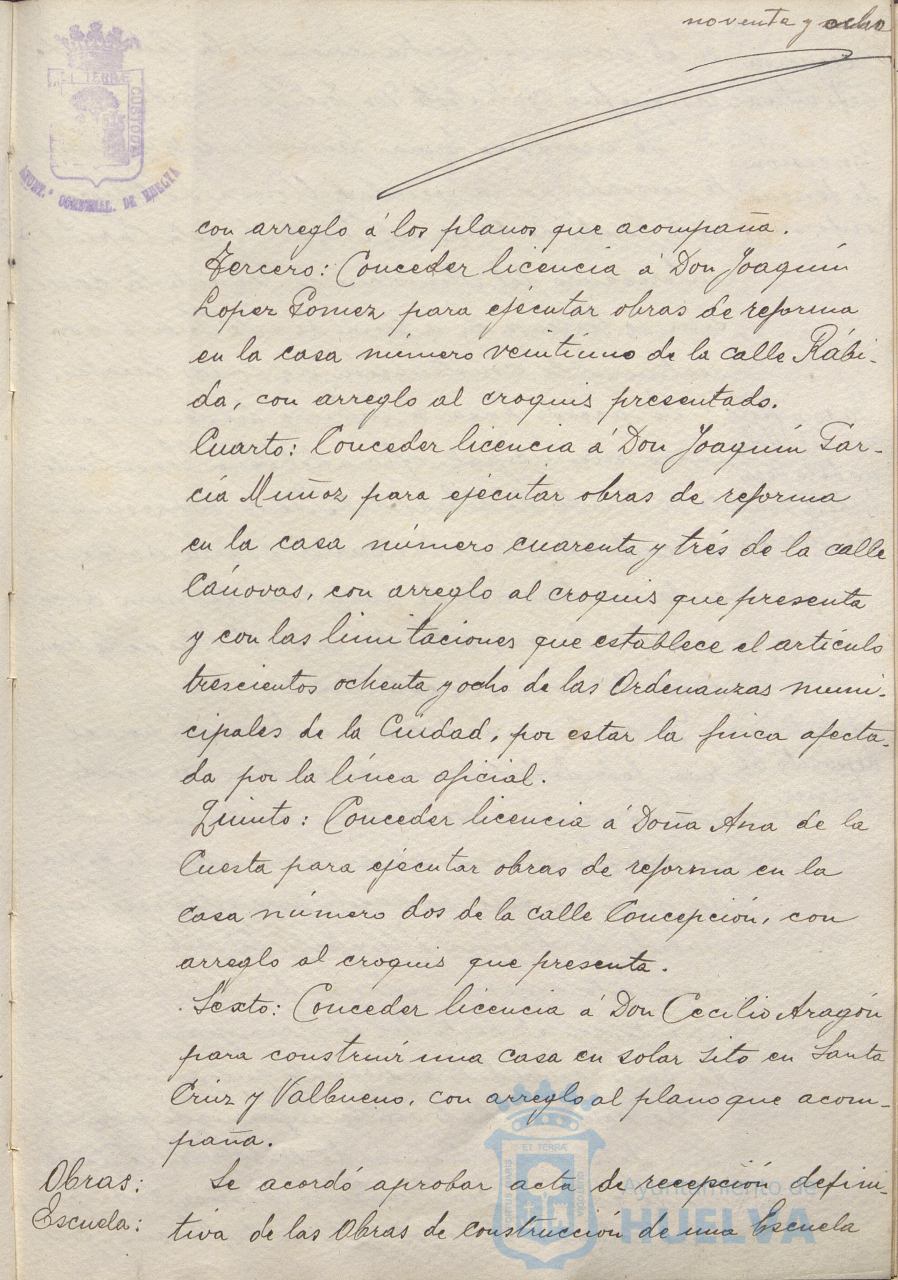 noventa y ocho
ET TERRÆ
CUSTODIA
AYUNT.º CONSTNAL. DE HUELVA
con arreglo á los planos que acompaña.
Tercero: Conceder licencia á Don Joaquín
Lopez Gomez para ejecutar obras de reforma
en la casa número veintiuno de la calle Rábi-
da, con arreglo al croquis presentado.
Cuarto: Conceder licencia á Don Joaquín Gar-
cía Muñoz para ejecutar obras de reforma
en la casa número cuarenta y trés de la calle
Cánovas, con arreglo al croquis que presenta
y con las limitaciones que establece el artículo
trescientos ochenta y ocho de las Ordenanzas muni-
cipales de la Ciudad, por estar la finca afecta-
da por la línea oficial.
Quinto: Conceder licencia á Doña Ana de la
Cuesta para ejecutar obras de reforma en la
casa número dos de la calle Concepción, con
arreglo al croquis que presenta.
Sexto: Conceder licencia á Don Cecilio Aragón
para construir una casa en solar sito en Santa
Cruz y Valbueno, con arreglo al plano que acom-
paña.
Obras:
Escuela:
Se acordó aprobar acta de recepción defini-
tiva de las Obras de construcción de una Escuela
ET TERRÆ
Ayuntamiento de
HUELVA